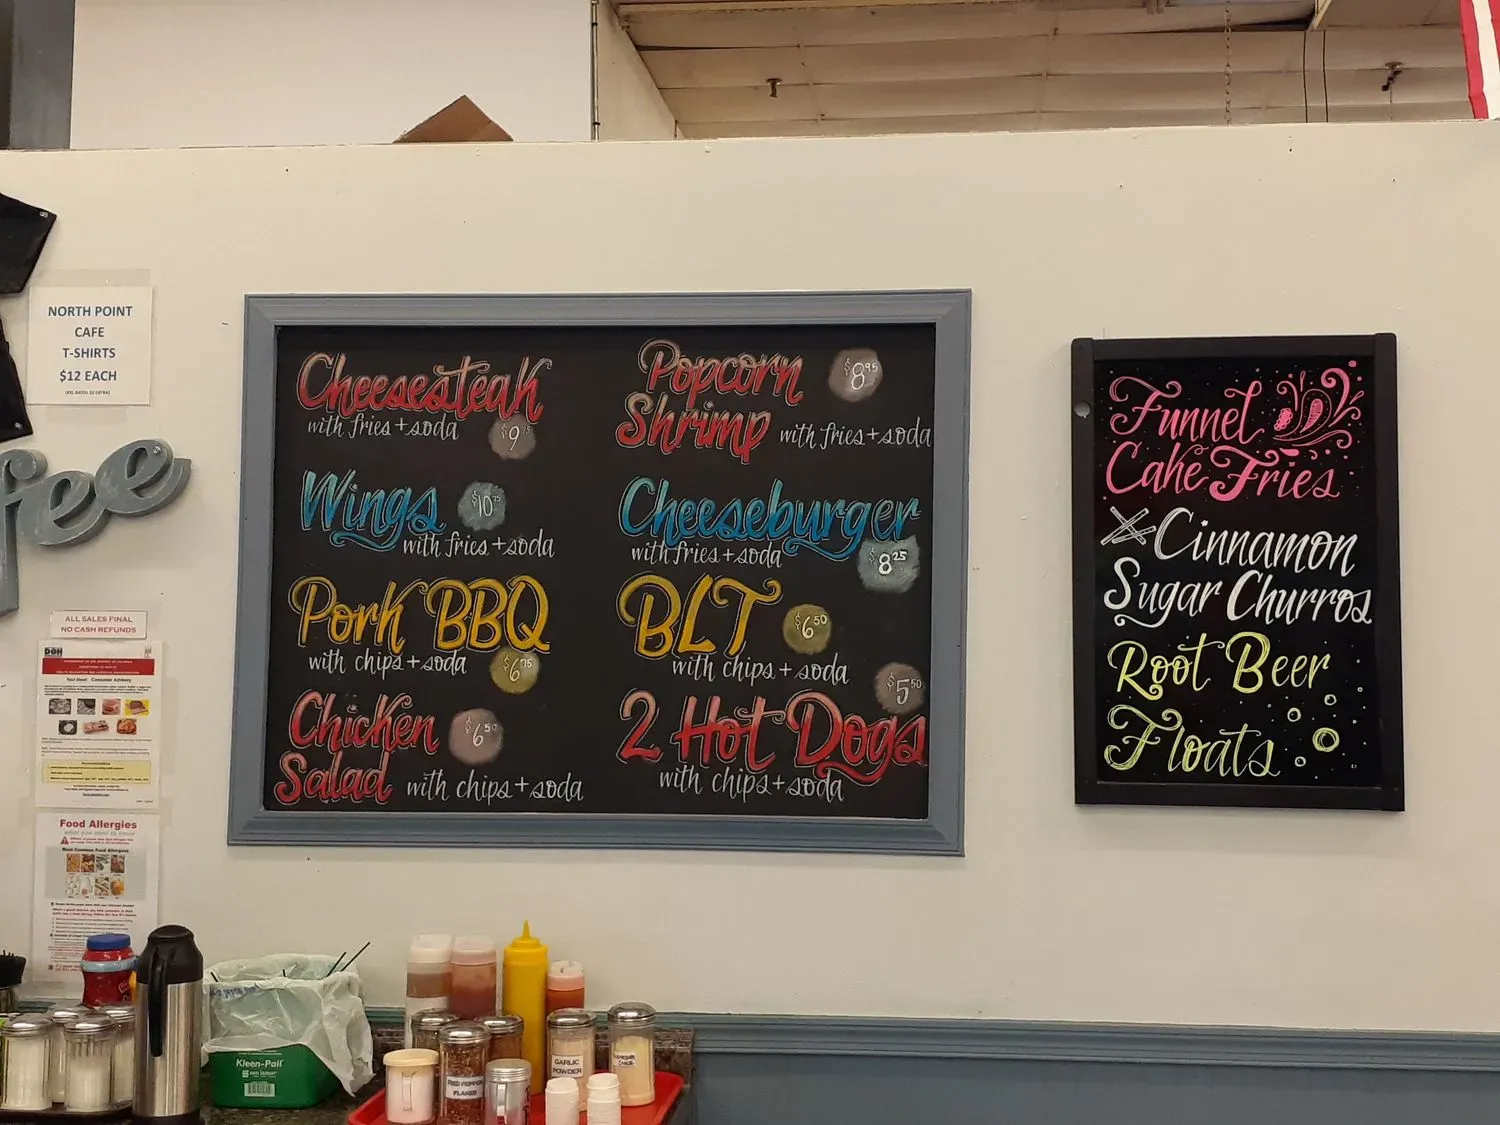 NORTH POINT
CAFE
T-SHIRTS
$12 EACH
fee
ALL SALES FINAL
NO CASH REFUNDS
DOH
Fact Sheet: Consumer Advisory
Food Allergies
WHAT YOU NEED TO KNOW
Most Common Food Allergens
Cheesesteak
with fries + soda
$9
Wings $10.75
with fries + soda
Pork BBQ
with chips + soda
$6.75
Chicken $6.50
Salad with chips + soda
Popcorn $8.95
Shrimp with fries + soda
Cheeseburger
with fries + soda
$8.25
BLT $6.50
with chips + soda
$5.50
2 Hot Dogs
with chips + soda
Funnel
Cake Fries
Cinnamon
Sugar Churros
Root Beer
Floats
Kleen-Pail
RED PEPPER
FLAKES
GARLIC
POWDER